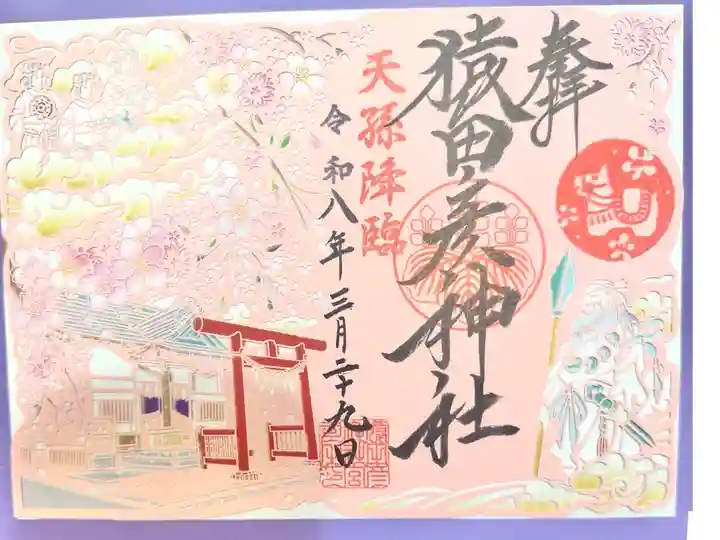 奉拝
猿田彦神社
天孫降臨
令和八年三月二十九日